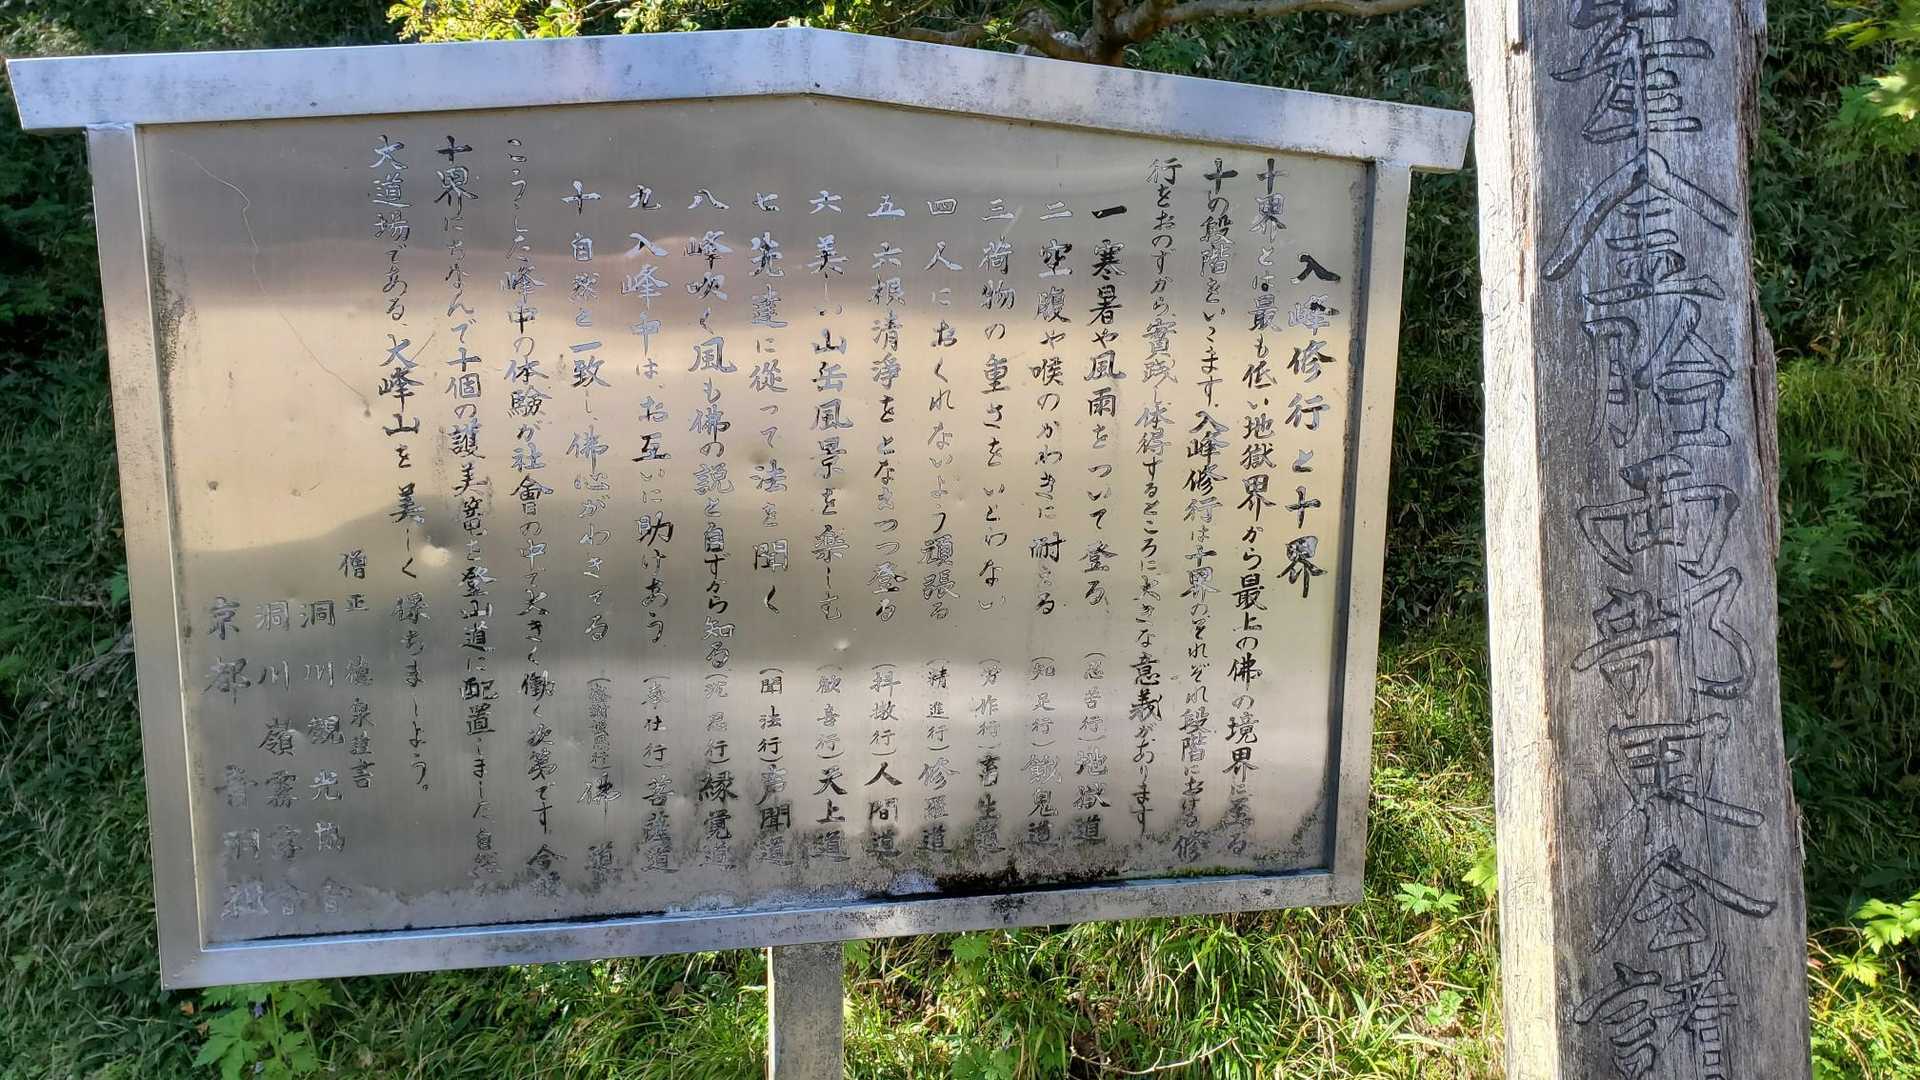 入峰修行と十界
十界とは最も低い地獄界から最上の佛の境界に至る
十の段階をいいます。入峰修行は十界のそれぞれ段階における修
行をおのずから實践し体得するところに大きな意義があります
一 寒暑や風雨をついて登る (忍苦行) 地獄道
二 空腹や喉のかわきに耐える (知足行) 餓鬼道
三 荷物の重さをいとわない (労作行) 畜生道
四 人におくれないよう頑張る (精進行) 修羅道
五 六根清浄をとなえつつ登る (行) 人間道
六 美しい山岳風景を楽しむ (歓喜行) 天上道
七 先達に従って法を聞く (聞法行) 声聞道
八 峰吹く風も佛の説と自ずから知る (行) 縁覚道
九 入峰中は、お互いに助けあう (奉仕行) 菩薩道
十 自然と一致し佛心がわきでる (行) 佛道
こうした峰中の体驗が社會の中で大きく働く次第です。今般
十界にちなんで十個の護美篭を登山道に配置しました。自然
大道場である、大峰山を美しく保ちましょう。
僧正
洞川観光協會
洞川嶺霧字會
京都
金拾両
會
諸